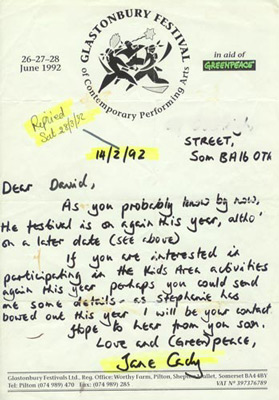 GLASTONBURY FESTIVAL
of Contemporary Performing Arts
26-27-28
June 1992
in aid of
GREENPEACE
Replied
Sat 28/3/92
14/2/92
STREET,
Som BA16 0TA
Dear David,
As you probably know by now,
the festival is on again this year, altho'
on a later date (see above)
If you are interested in
participating in the Kids Area activities
again this year perhaps you could send
me some details - as Stephanie has
bowed out this year I will be your contact.
Hope to hear from you soon.
Love and Greenpeace,
Jane Cady
Glastonbury Festivals Ltd., Reg. Office: Worthy Farm, Pilton, Shepton Mallet, Somerset BA4 4BY
Tel: Pilton (074 989) 470 Fax: (074 989) 285
VAT Nº 397376789